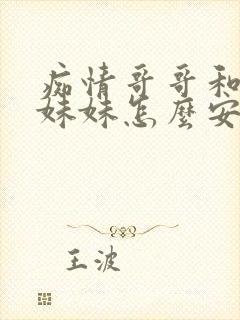 痴情哥哥和
妹妹怎麼安
王波